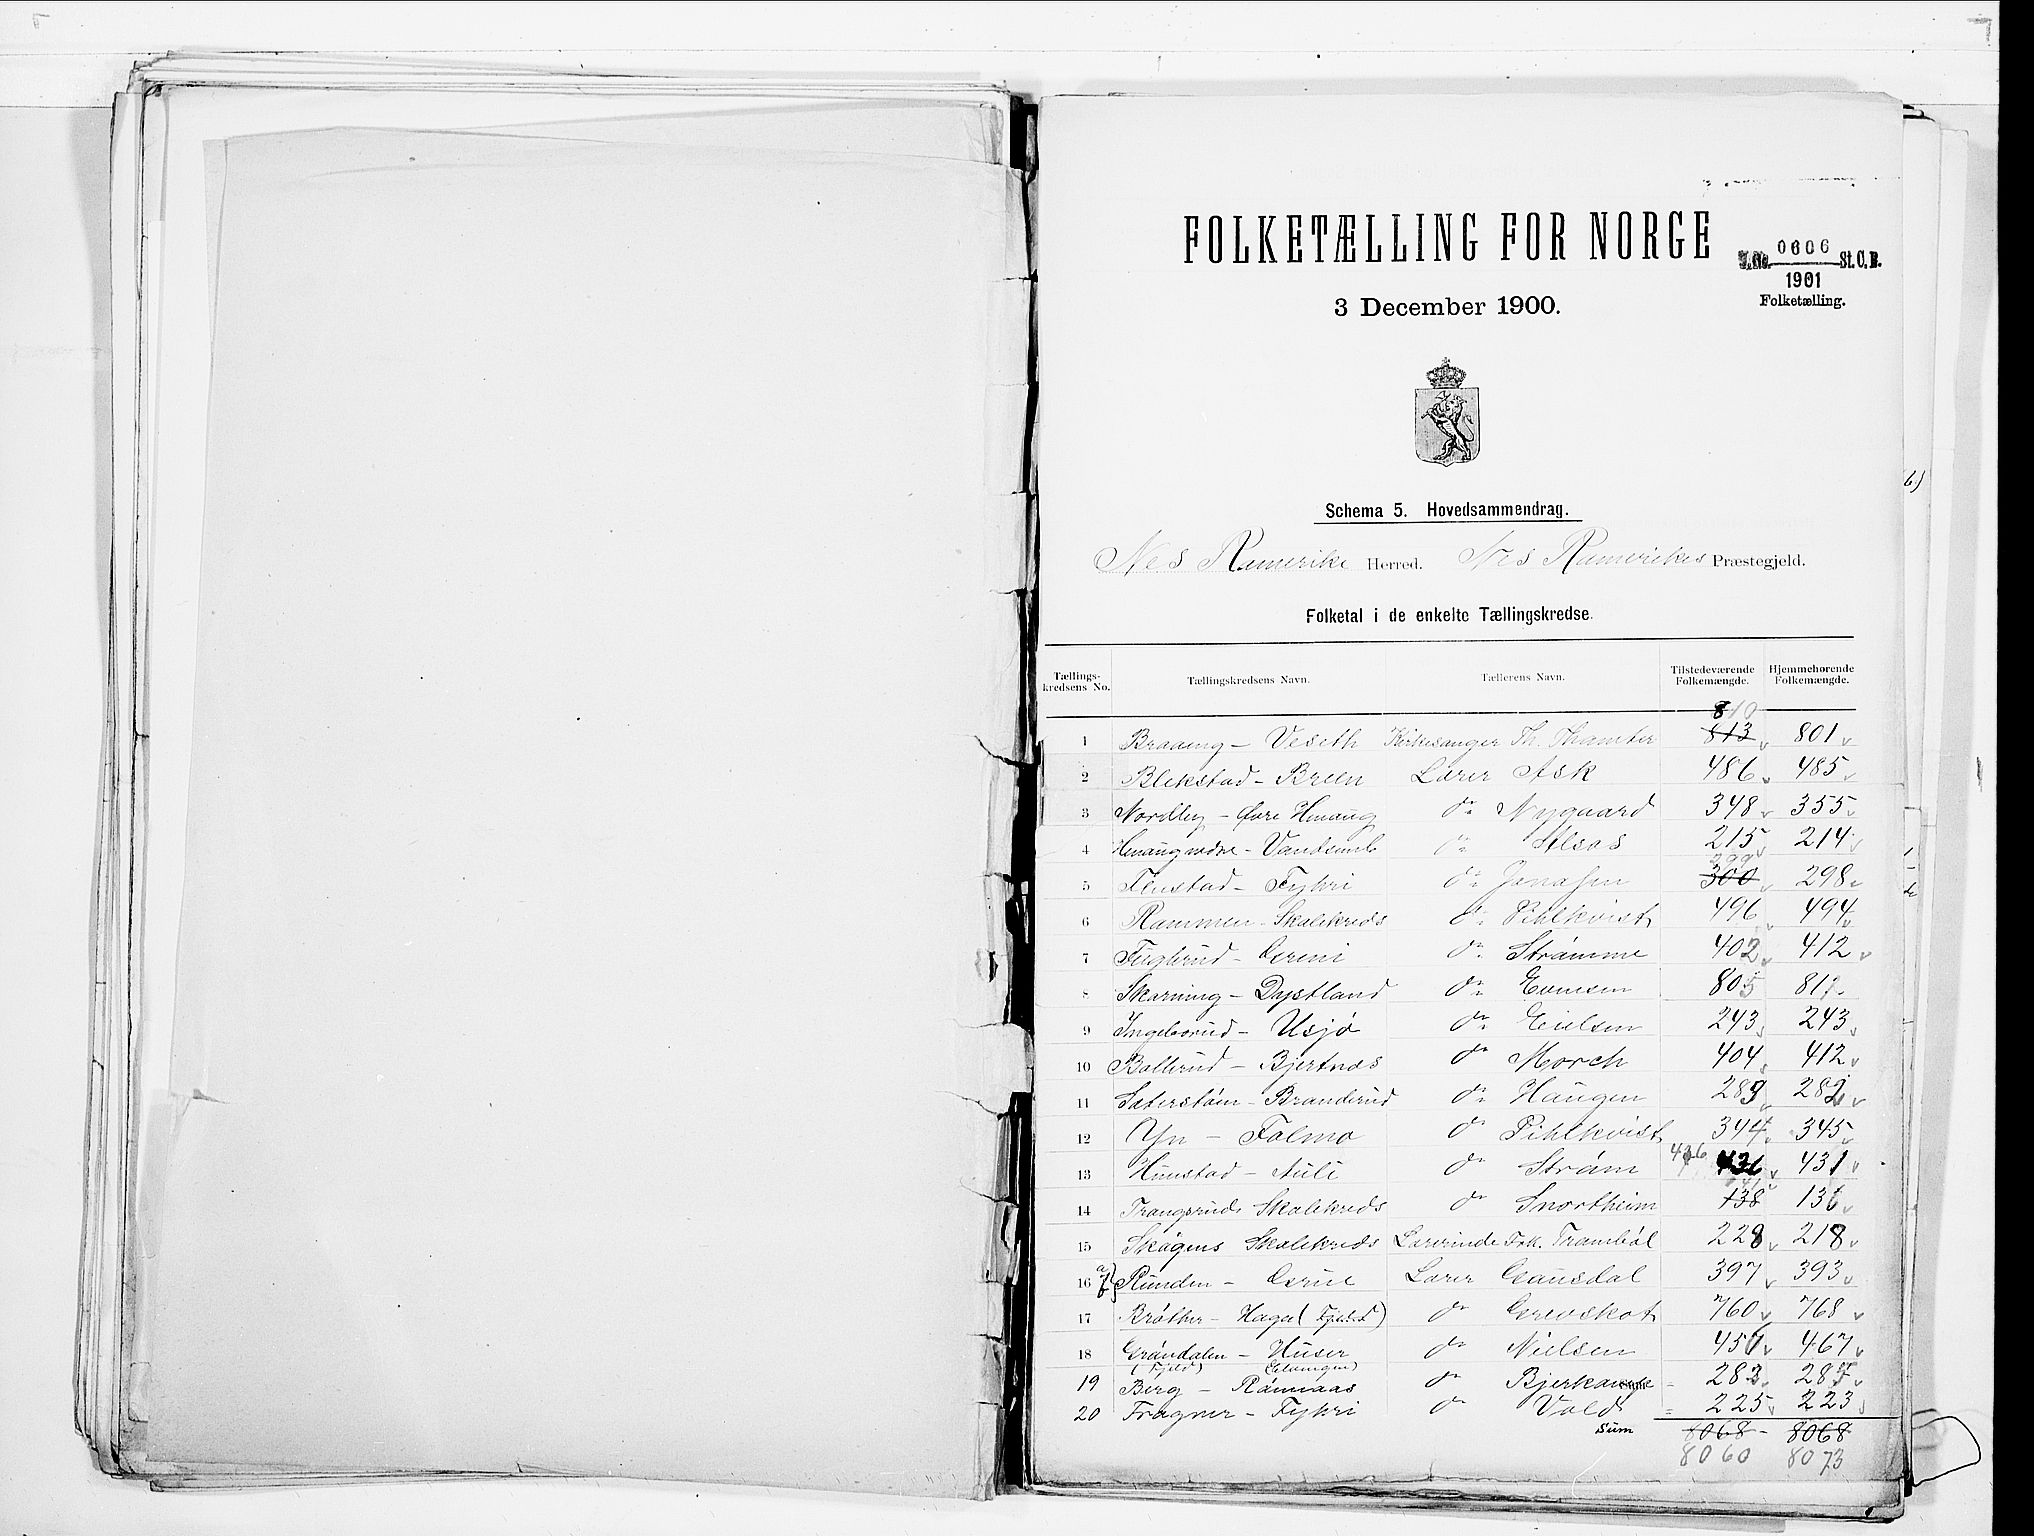 FOLKETÆLLING FOR NORGE
J.No. 0606 St.C.B.
1901
Folketælling.
3 December 1900.
Schema 5. Hovedsammendrag.
Nes Romerike Herred. Nes Romerikes Præstegjeld.
Folketal i de enkelte Tællingskredse.
Tællingskredsens No. Tællingskredsens Navn. Tællerens Navn. Tilstedeværende Folkemængde. Hjemmehørende Folkemængde.
810
1 Braaeng - Veseth Kirkesanger Th. 813 801
2 Blekstad - Breen Lærer Ask 486 485
3 Nordby - Øvre Henaug do Nygaard 348 355
4 Henaug nedre - do Alsos 215 214
299
5 Finstad - Fykri do Jonassen 300 298
6 Rammen Skolekreds do Pihlkvist 496 494
7 Fuglerud - Greni do Strømme 402 412
8 Skarning - Dystland do Evensen 805 811
9 Ingeborud - Usjø do Eielsen 243 243
10 Ballerud - Bjertnæs do Mørch 404 412
11 Sæterstøen - Branderud do Haugen 289 282
12 Yn - Folmo do Pihlkvist 344 345
13 Hunstad - Auli do Strøm 436 431
14 Trangsrud Skolekreds do Snortheim 138 136
15 Skogens Skolekreds Lærerinde Frk. Trambøl 228 218
16 a b Runden - Grue Lærer Gausdal 397 393
17 Brøther - Haga (Fjeld) do Grevskot 760 768
18 Grøndalen - Huser do Nielsen 451 467
(Fjeld)
19 Berg - Rånaas do 283 287
20 Frogner - Fykri do Vold 225 223
Sum 8068 - 8068
8060 8073